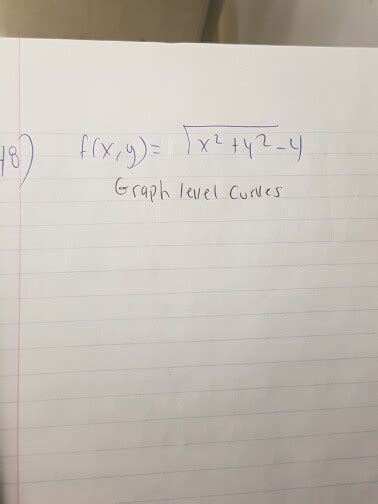 48) f(x,y) = √x² + y² - 4
Graph level curves